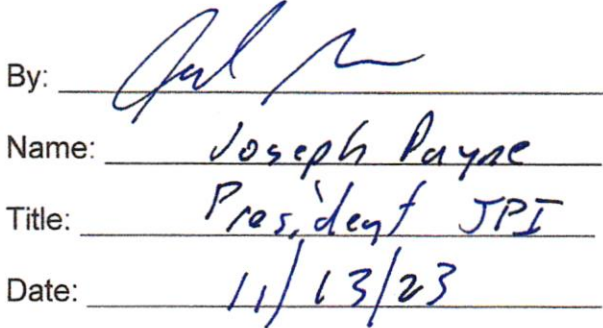 By:
Name: Joseph Payne
Title: President JPI
Date: 11/13/23